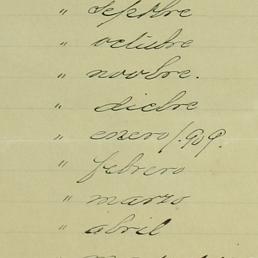 " Sepbre
" octubre
" noobre.
" dicbre
" enero 1.909.
" febrero
" marzo
" abril